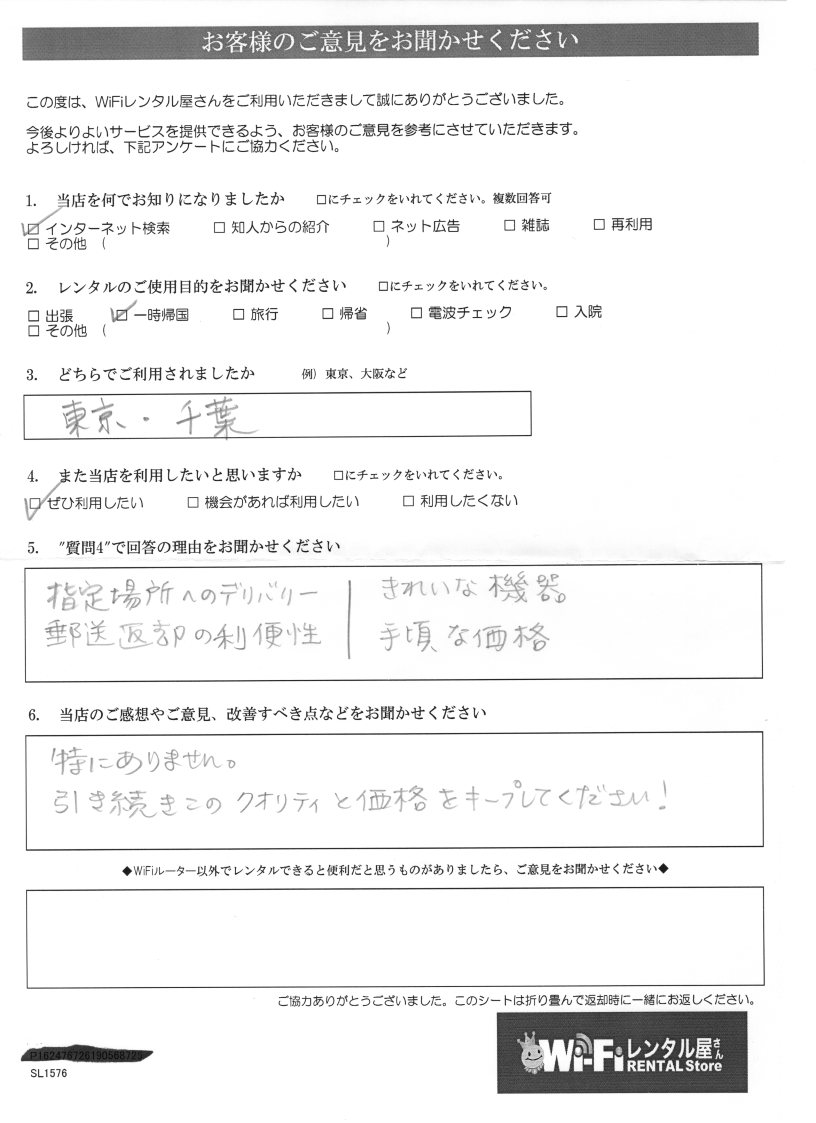 お客様のご意見をお聞かせください
この度は、WiFiレンタル屋さんをご利用いただきまして誠にありがとうございました。
今後よりよいサービスを提供できるよう、お客様のご意見を参考にさせていただきます。
よろしければ、下記アンケートにご協力ください。
1. 当店を何でお知りになりましたか □にチェックをいれてください。複数回答可
☑ インターネット検索 □ 知人からの紹介 □ ネット広告 □ 雑誌 □ 再利用
□ その他 ( )
2. レンタルのご使用目的をお聞かせください □にチェックをいれてください。
□ 出張 ☑ 一時帰国 □ 旅行 □ 帰省 □ 電波チェック □ 入院
□ その他 ( )
3. どちらでご利用されましたか 例）東京、大阪など
東京・千葉
4. また当店を利用したいと思いますか □にチェックをいれてください。
☑ ぜひ利用したい □ 機会があれば利用したい □ 利用したくない
5. ”質問4”で回答の理由をお聞かせください
指定場所へのデリバリー
郵送返却の利便性
きれいな機器。
手頃な価格
6. 当店のご感想やご意見、改善すべき点などをお聞かせください
特にありません。
引き続きこのクオリティと価格をキープしてください！
◆WiFiルーター以外でレンタルできると便利だと思うものがありましたら、ご意見をお聞かせください◆
ご協力ありがとうございました。このシートは折り畳んで返却時に一緒にお返しください。
SL1576
Wi-Fiレンタル屋さん
RENTAL Store